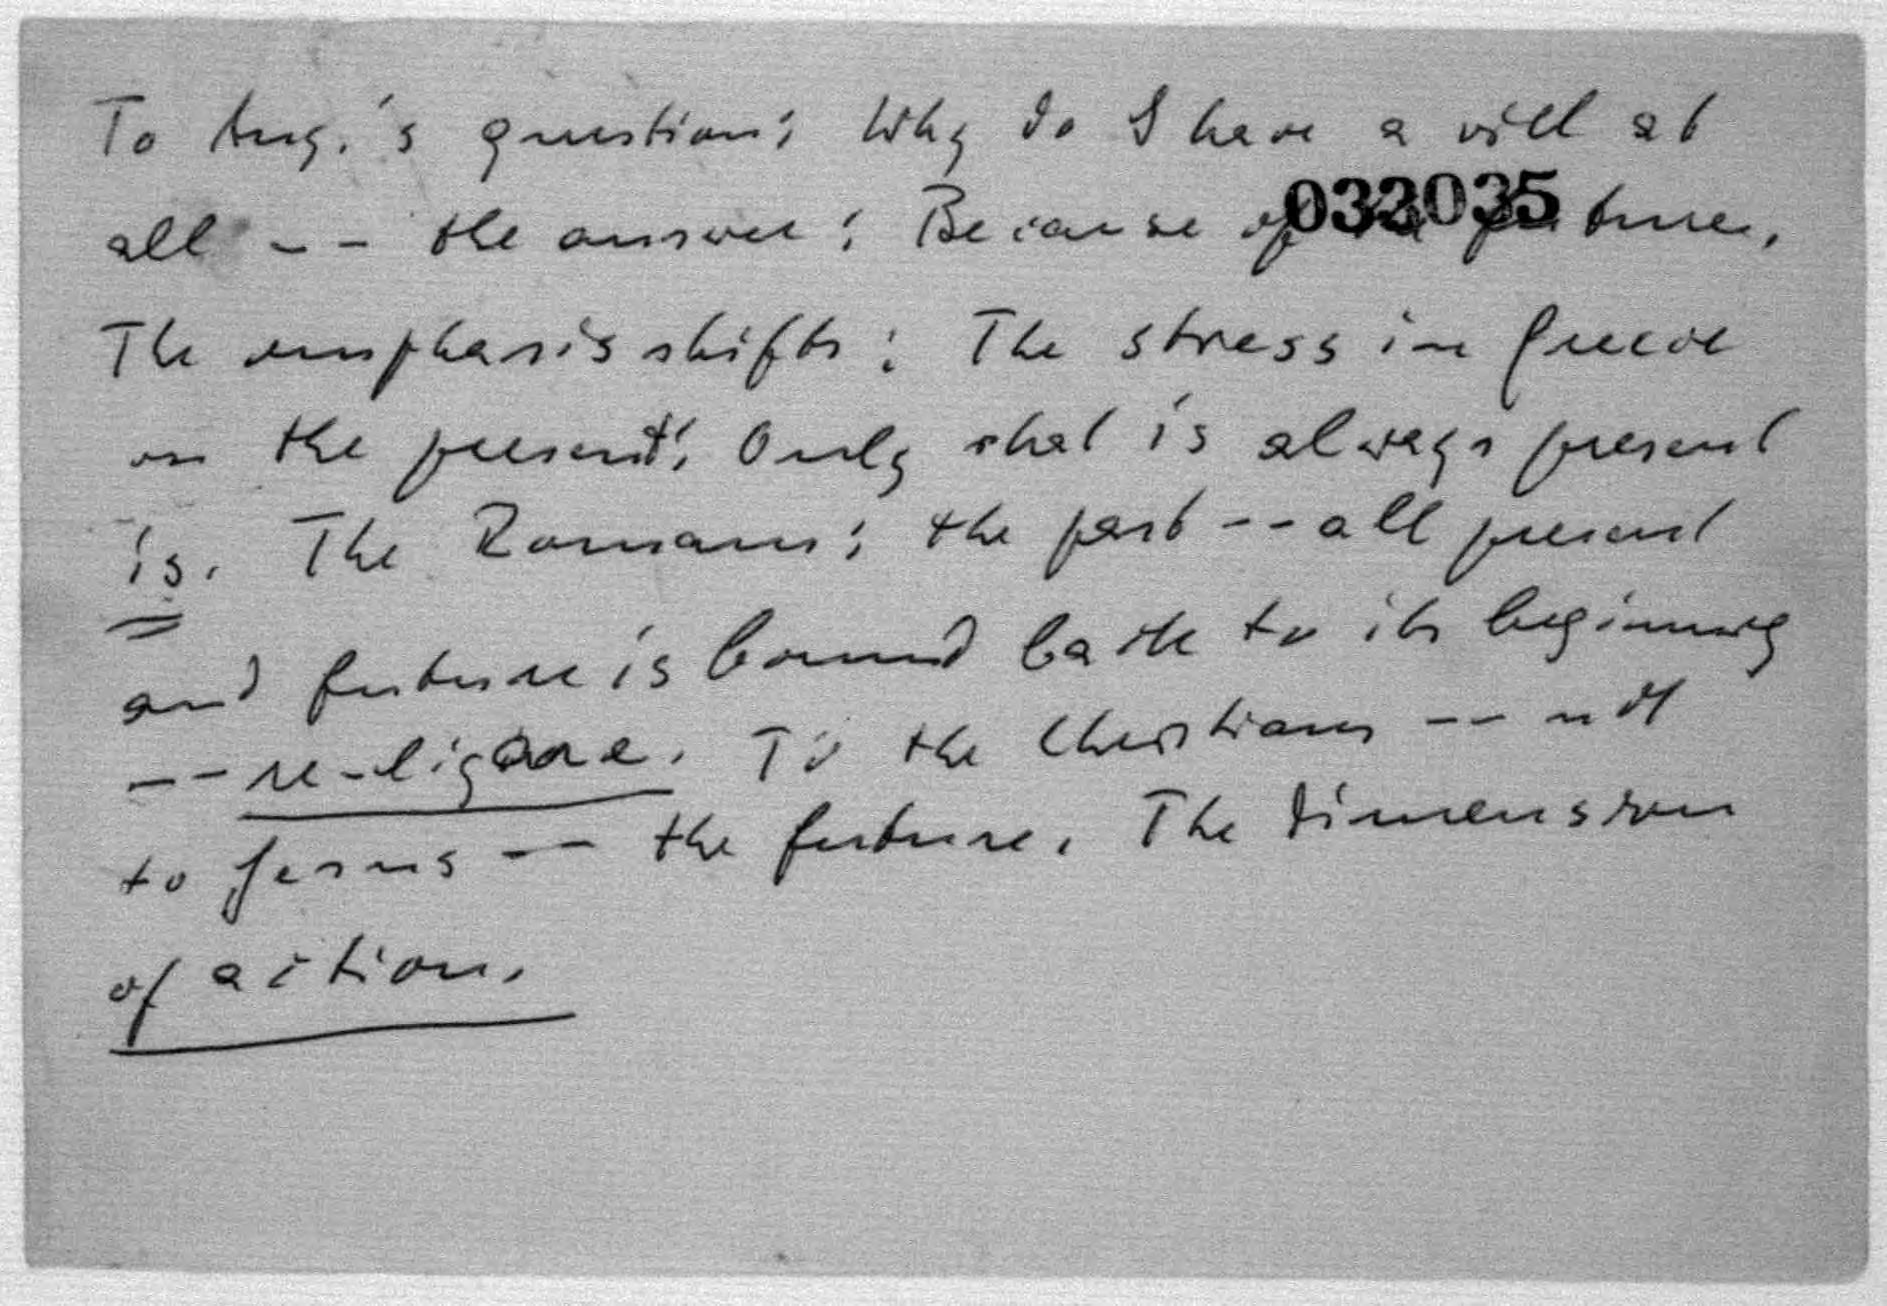 To Aug.'s question: Why do I have a will at
all -- the answer: Because of the future.
033035
The emphasis shifts: The stress in Greece
on the present: Only what is always present
is. The Romans: the past -- all present
and future is bound back to its beginning
-- re-ligare. To the Christians -- not
to Jesus -- the future. The dimension
of action.